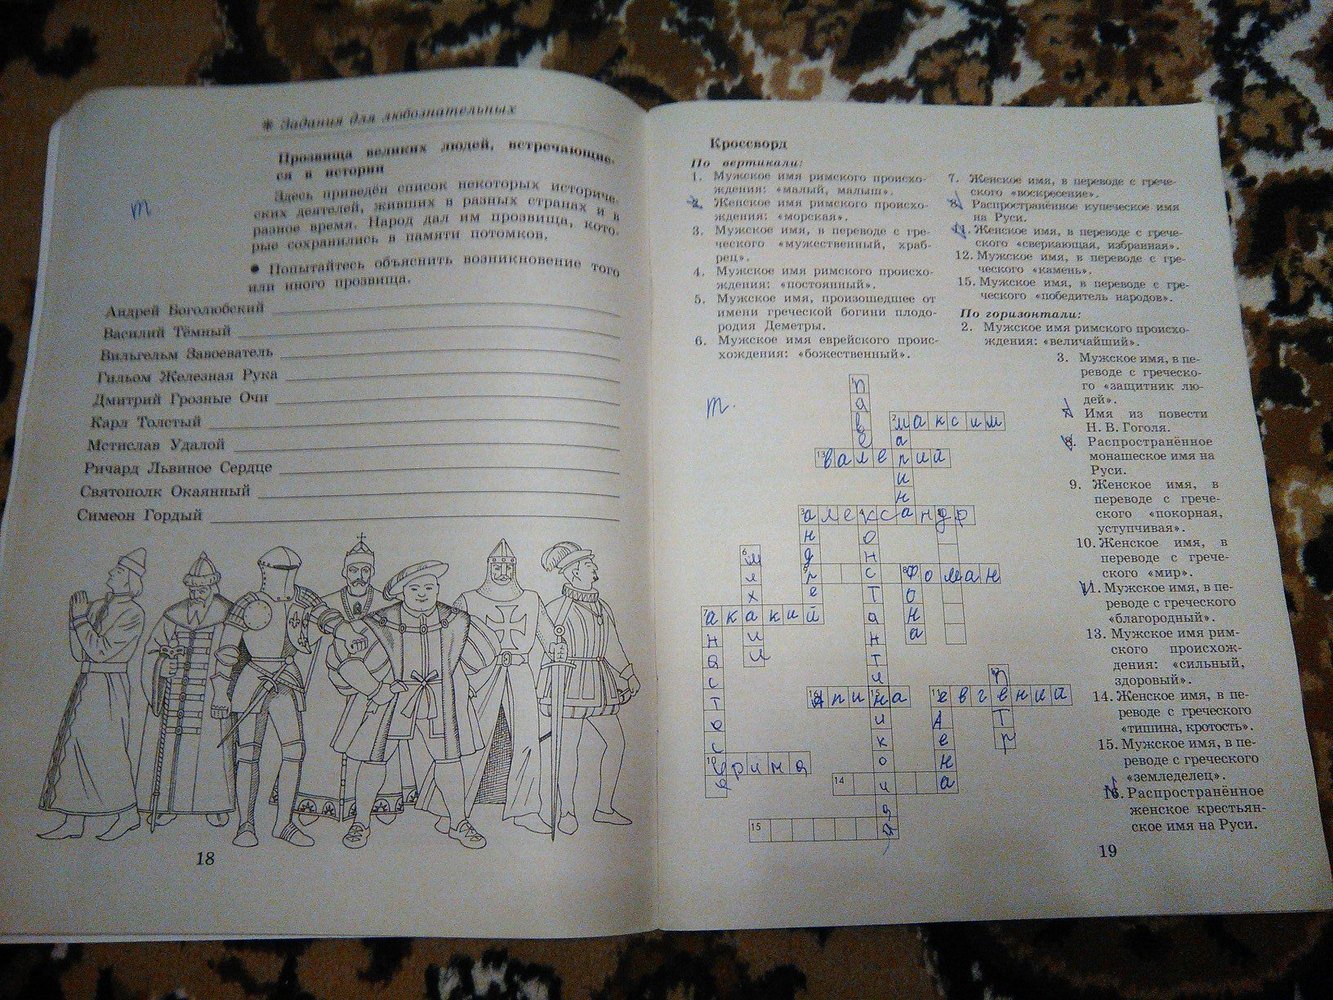 * Задания для любознательных
Прозвища великих людей, встречающие-
ся в истории
Здесь приведён список некоторых историче-
ских деятелей, живших в разных странах и в
разное время. Народ дал им прозвища, кото-
рые сохранились в памяти потомков.
• Попытайтесь объяснить возникновение того
или иного прозвища.
Андрей Боголюбский
Василий Тёмный
Вильгельм Завоеватель
Гильом Железная Рука
Дмитрий Грозные Очи
Карл Толстый
Мстислав Удалой
Ричард Львиное Сердце
Святополк Окаянный
Симеон Гордый
18
Кроссворд
По вертикали:
1. Мужское имя римского происхо-
ждения: «малый, малыш».
2. Женское имя римского происхо-
ждения: «морская».
3. Мужское имя, в переводе с гре-
ческого «мужественный, храб-
рец».
4. Мужское имя римского происхо-
ждения: «постоянный».
5. Мужское имя, произошедшее от
имени греческой богини плодо-
родия Деметры.
6. Мужское имя еврейского проис-
хождения: «божественный».
7. Женское имя, в переводе с грече-
ского «воскресение».
8. Распространённое купеческое имя
на Руси.
11. Женское имя, в переводе с грече-
ского «сверкающая, избранная».
12. Мужское имя, в переводе с гре-
ческого «камень».
15. Мужское имя, в переводе с гре-
ческого «победитель народов».
По горизонтали:
2. Мужское имя римского происхо-
ждения: «величайший».
3. Мужское имя, в пе-
реводе с греческо-
го «защитник лю-
дей».
Имя из повести
Н. В. Гоголя.
8. Распространённое
монашеское имя на
Руси.
9. Женское имя, в
переводе с грече-
ского «покорная,
уступчивая».
10. Женское имя, в
переводе с грече-
ского «мир».
11. Мужское имя, в пе-
реводе с греческого
«благородный».
13. Мужское имя рим-
ского происхож-
дения: «сильный,
здоровый».
14. Женское имя, в пе-
реводе с греческого
«тишина, кротость».
15. Мужское имя, в пе-
реводе с греческого
«земледелец».
16. Распространённое
женское крестьян-
ское имя на Руси.
павел
максим
марина
валерий
александр
андрей
константин
михаил
фома
акакий
анастасия
евгений
петр
елена
ирина
14
15
19